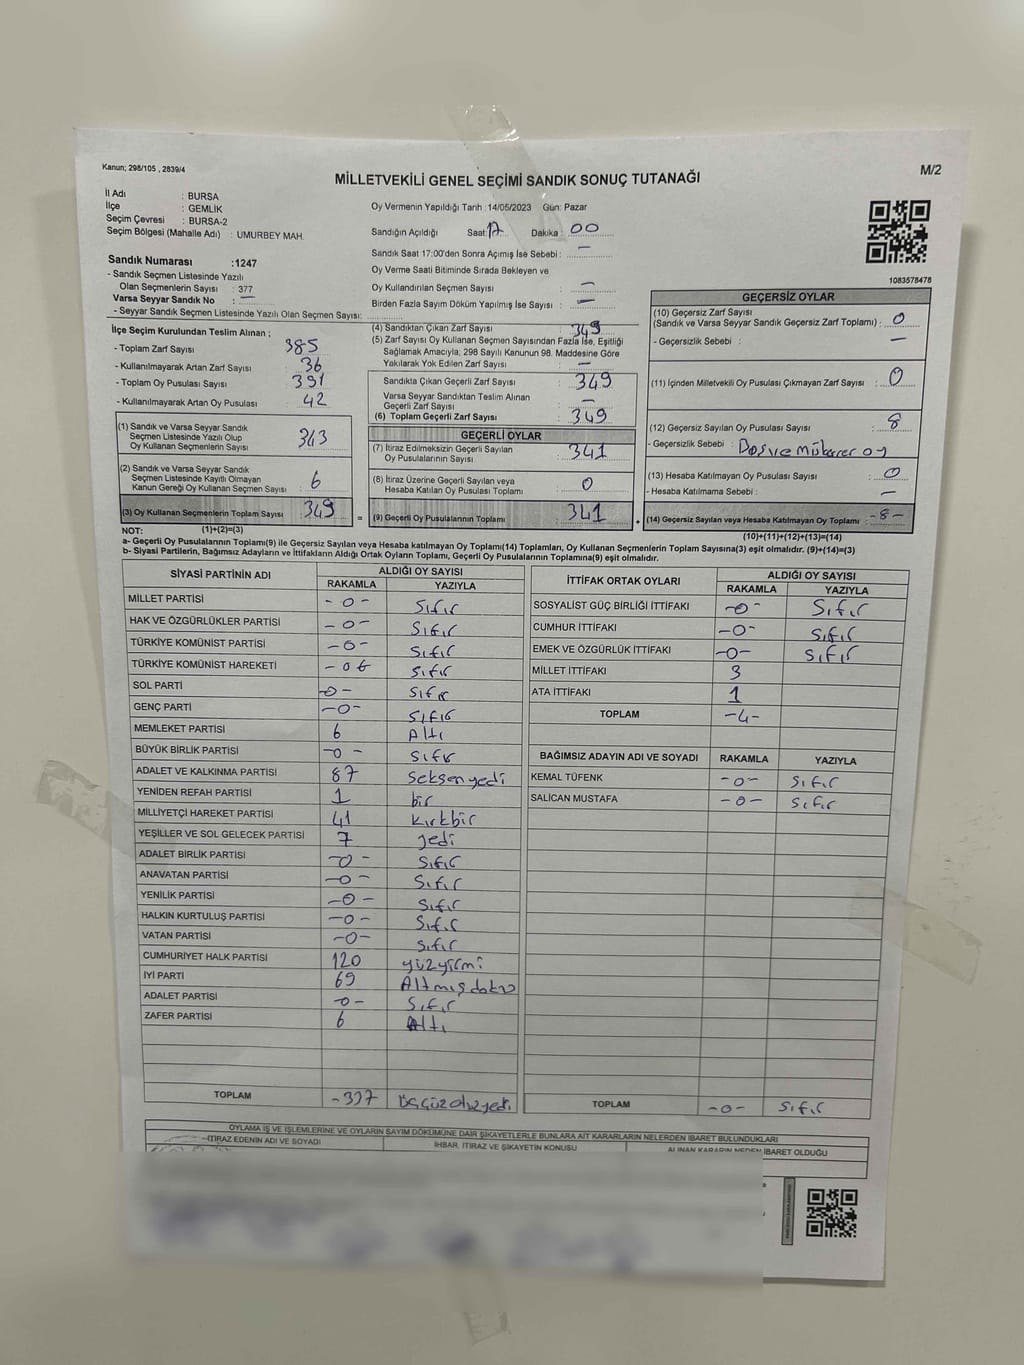 Kanun; 298/105 , 2839/4
M/2
MİLLETVEKİLİ GENEL SEÇİMİ SANDIK SONUÇ TUTANAĞI
İl Adı : BURSA
İlçe : GEMLİK
Seçim Çevresi : BURSA-2
Seçim Bölgesi (Mahalle Adı) : UMURBEY MAH.
Sandık Numarası :1247
- Sandık Seçmen Listesinde Yazılı
Olan Seçmenlerin Sayısı : 377
Varsa Seyyar Sandık No : —
- Seyyar Sandık Seçmen Listesinde Yazılı Olan Seçmen Sayısı:
İlçe Seçim Kurulundan Teslim Alınan ;
- Toplam Zarf Sayısı : 385
- Kullanılmayarak Artan Zarf Sayısı : 36
- Toplam Oy Pusulası Sayısı : 391
- Kullanılmayarak Artan Oy Pusulası : 42
(1) Sandık ve Varsa Seyyar Sandık
Seçmen Listesinde Yazılı Olup
Oy Kullanan Seçmenlerin Sayısı : 343
(2) Sandık ve Varsa Seyyar Sandık
Seçmen Listesinde Kayıtlı Olmayan
Kanun Gereği Oy Kullanan Seçmen Sayısı : 6
(3) Oy Kullanan Seçmenlerin Toplam Sayısı : 349
(1)+(2)=(3)
Oy Vermenin Yapıldığı Tarih :14/05/2023 Gün: Pazar
Sandığın Açıldığı Saat: 17 Dakika : 00
Sandık Saat 17:00'den Sonra Açımış İse Sebebi : —
Oy Verme Saati Bitiminde Sırada Bekleyen ve
Oy Kullandırılan Seçmen Sayısı : —
Birden Fazla Sayım Döküm Yapılmış İse Sayısı : —
(4) Sandıktan Çıkan Zarf Sayısı : 349
(5) Zarf Sayısı Oy Kullanan Seçmen Sayısından Fazla İse, Eşitliği
Sağlamak Amacıyla; 298 Sayılı Kanunun 98. Maddesine Göre
Yakılarak Yok Edilen Zarf Sayısı : —
Sandıkta Çıkan Geçerli Zarf Sayısı : 349
Varsa Seyyar Sandıktan Teslim Alınan
Geçerli Zarf Sayısı : —
(6) Toplam Geçerli Zarf Sayısı : 349
GEÇERLİ OYLAR
(7) İtiraz Edilmeksizin Geçerli Sayılan
Oy Pusulalarının Sayısı : 341
(8) İtiraz Üzerine Geçerli Sayılan veya
Hesaba Katılan Oy Pusulası Toplamı : 0
= (9) Geçerli Oy Pusulalarının Toplamı : 341 +
1083578478
GEÇERSİZ OYLAR
(10) Geçersiz Zarf Sayısı
(Sandık ve Varsa Seyyar Sandık Geçersiz Zarf Toplamı) : 0
- Geçersizlik Sebebi : —
(11) İçinden Milletvekili Oy Pusulası Çıkmayan Zarf Sayısı : 0
(12) Geçersiz Sayılan Oy Pusulası Sayısı : 8
- Geçersizlik Sebebi : Boş ve mükerer oy
(13) Hesaba Katılmayan Oy Pusulası Sayısı : 0
- Hesaba Katılmama Sebebi : —
(14) Geçersiz Sayılan veya Hesaba Katılmayan Oy Toplamı : -8-
(10)+(11)+(12)+(13)=(14)
NOT:
a- Geçerli Oy Pusulalarının Toplamı(9) ile Geçersiz Sayılan veya Hesaba katılmayan Oy Toplamı(14) Toplamları, Oy Kullanan Seçmenlerin Toplam Sayısına(3) eşit olmalıdır. (9)+(14)=(3)
b- Siyasi Partilerin, Bağımsız Adayların ve İttifakların Aldığı Ortak Oyların Toplamı, Geçerli Oy Pusulalarının Toplamına(9) eşit olmalıdır.
SİYASİ PARTİNİN ADI ALDIĞI OY SAYISI
RAKAMLA YAZIYLA
MİLLET PARTİSİ -0- Sıfır
HAK VE ÖZGÜRLÜKLER PARTİSİ -0- Sıfır
TÜRKİYE KOMÜNİST PARTİSİ -0- Sıfır
TÜRKİYE KOMÜNİST HAREKETİ Sıfır
SOL PARTİ -0- Sıfır
GENÇ PARTİ -0- Sıfır
MEMLEKET PARTİSİ 6 Altı
BÜYÜK BİRLİK PARTİSİ -0- Sıfır
ADALET VE KALKINMA PARTİSİ 87 Seksenyedi
YENİDEN REFAH PARTİSİ 1 bir
MİLLİYETÇİ HAREKET PARTİSİ 41 Kırkbir
YEŞİLLER VE SOL GELECEK PARTİSİ 7 yedi
ADALET BİRLİK PARTİSİ -0- Sıfır
ANAVATAN PARTİSİ -0- Sıfır
YENİLİK PARTİSİ -0- Sıfır
HALKIN KURTULUŞ PARTİSİ -0- Sıfır
VATAN PARTİSİ -0- Sıfır
CUMHURİYET HALK PARTİSİ 120 yüzyirmi
İYİ PARTİ 69 Altmışdokuz
ADALET PARTİSİ -0- Sıfır
ZAFER PARTİSİ 6 Altı
TOPLAM -337 Üçyüzotuzyedi
İTTİFAK ORTAK OYLARI ALDIĞI OY SAYISI
RAKAMLA YAZIYLA
SOSYALİST GÜÇ BİRLİĞİ İTTİFAKI -0- Sıfır
CUMHUR İTTİFAKI -0- Sıfır
EMEK VE ÖZGÜRLÜK İTTİFAKI -0- Sıfır
MİLLET İTTİFAKI 3
ATA İTTİFAKI 1
TOPLAM -4-
BAĞIMSIZ ADAYIN ADI VE SOYADI RAKAMLA YAZIYLA
KEMAL TÜFENK -0- Sıfır
SALİCAN MUSTAFA -0- Sıfır
TOPLAM -0- Sıfır
OYLAMA İŞ VE İŞLEMLERİNE VE OYLARIN SAYIM DÖKÜMÜNE DAİR ŞİKAYETLERLE BUNLARA AİT KARARLARIN NELERDEN İBARET BULUNDUKLARI
İTİRAZ EDENİN ADI VE SOYADI İHBAR, İTİRAZ VE ŞİKAYETİN KONUSU ALINAN KARARIN NEDEN İBARET OLDUĞU